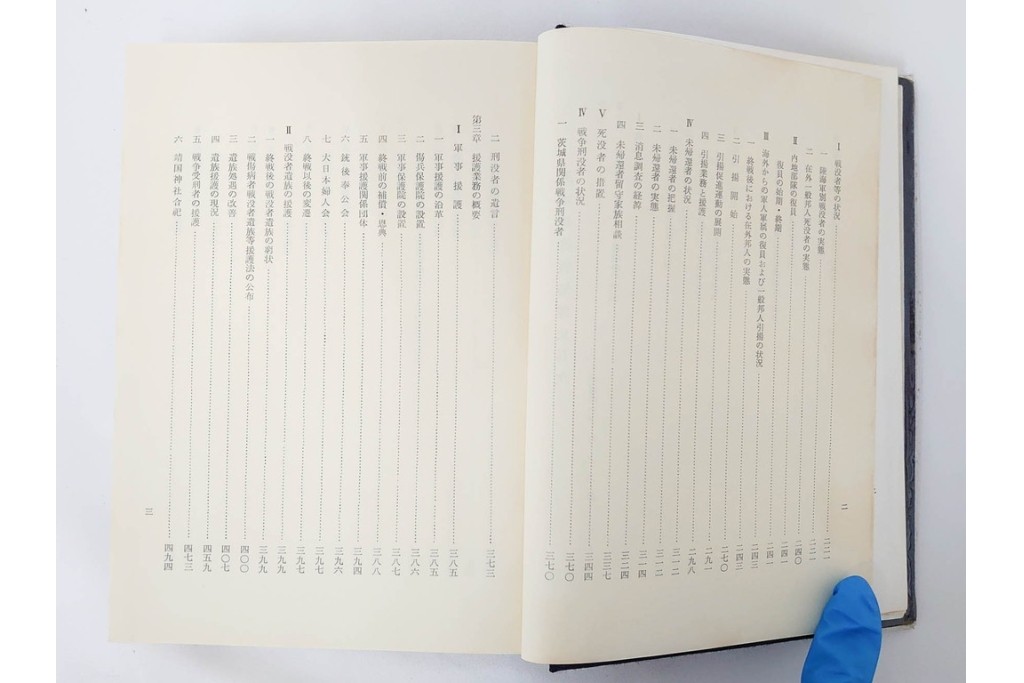 Ⅰ 戦没者等の状況……二二一
一 陸海軍別戦没者の実態……二二一
二 在外一般邦人死没者の実態……二四〇
Ⅱ 内地部隊の復員……二四一
復員の始期・終期……二四一
Ⅲ 海外からの軍人軍属の復員および一般邦人引揚の状況……二四三
一 終戦後における在外邦人の実態……二四三
二 引揚開始……二七〇
三 引揚促進運動の展開……二九一
四 引揚業務と援護……二九八
Ⅳ 未帰還者の状況……三一二
一 未帰還者の把握……三一二
二 未帰還者の実態……三一四
三 消息調査の経緯……三二四
四 未帰還者留守家族相談……三三七
Ⅴ 死没者の措置……三四四
Ⅳ 戦争刑没者の状況……三七〇
一 茨城県関係戦争刑没者……三七〇
二
二 刑没者の遺言……三七三
第三章 援護業務の概要
Ⅰ 軍事援護……三八五
一 軍事援護の沿革……三八五
二 傷兵保護院の設置……三八六
三 軍事保護院の設置……三八七
四 終戦前の補償・恩典……三八八
五 軍事援護関係団体……三九四
六 銃後奉公会……三九六
七 大日本婦人会……三九七
八 終戦以後の変遷……三九七
Ⅱ 戦没者遺族の援護……三九九
一 終戦後の戦没者遺族の窮状……三九九
二 戦傷病者戦没者遺族等援護法の公布……四〇〇
三 遺族処遇の改善……四〇七
四 遺族援護の現況……四五九
五 戦争受刑者の援護……四七三
六 靖国神社合祀……四九四
三